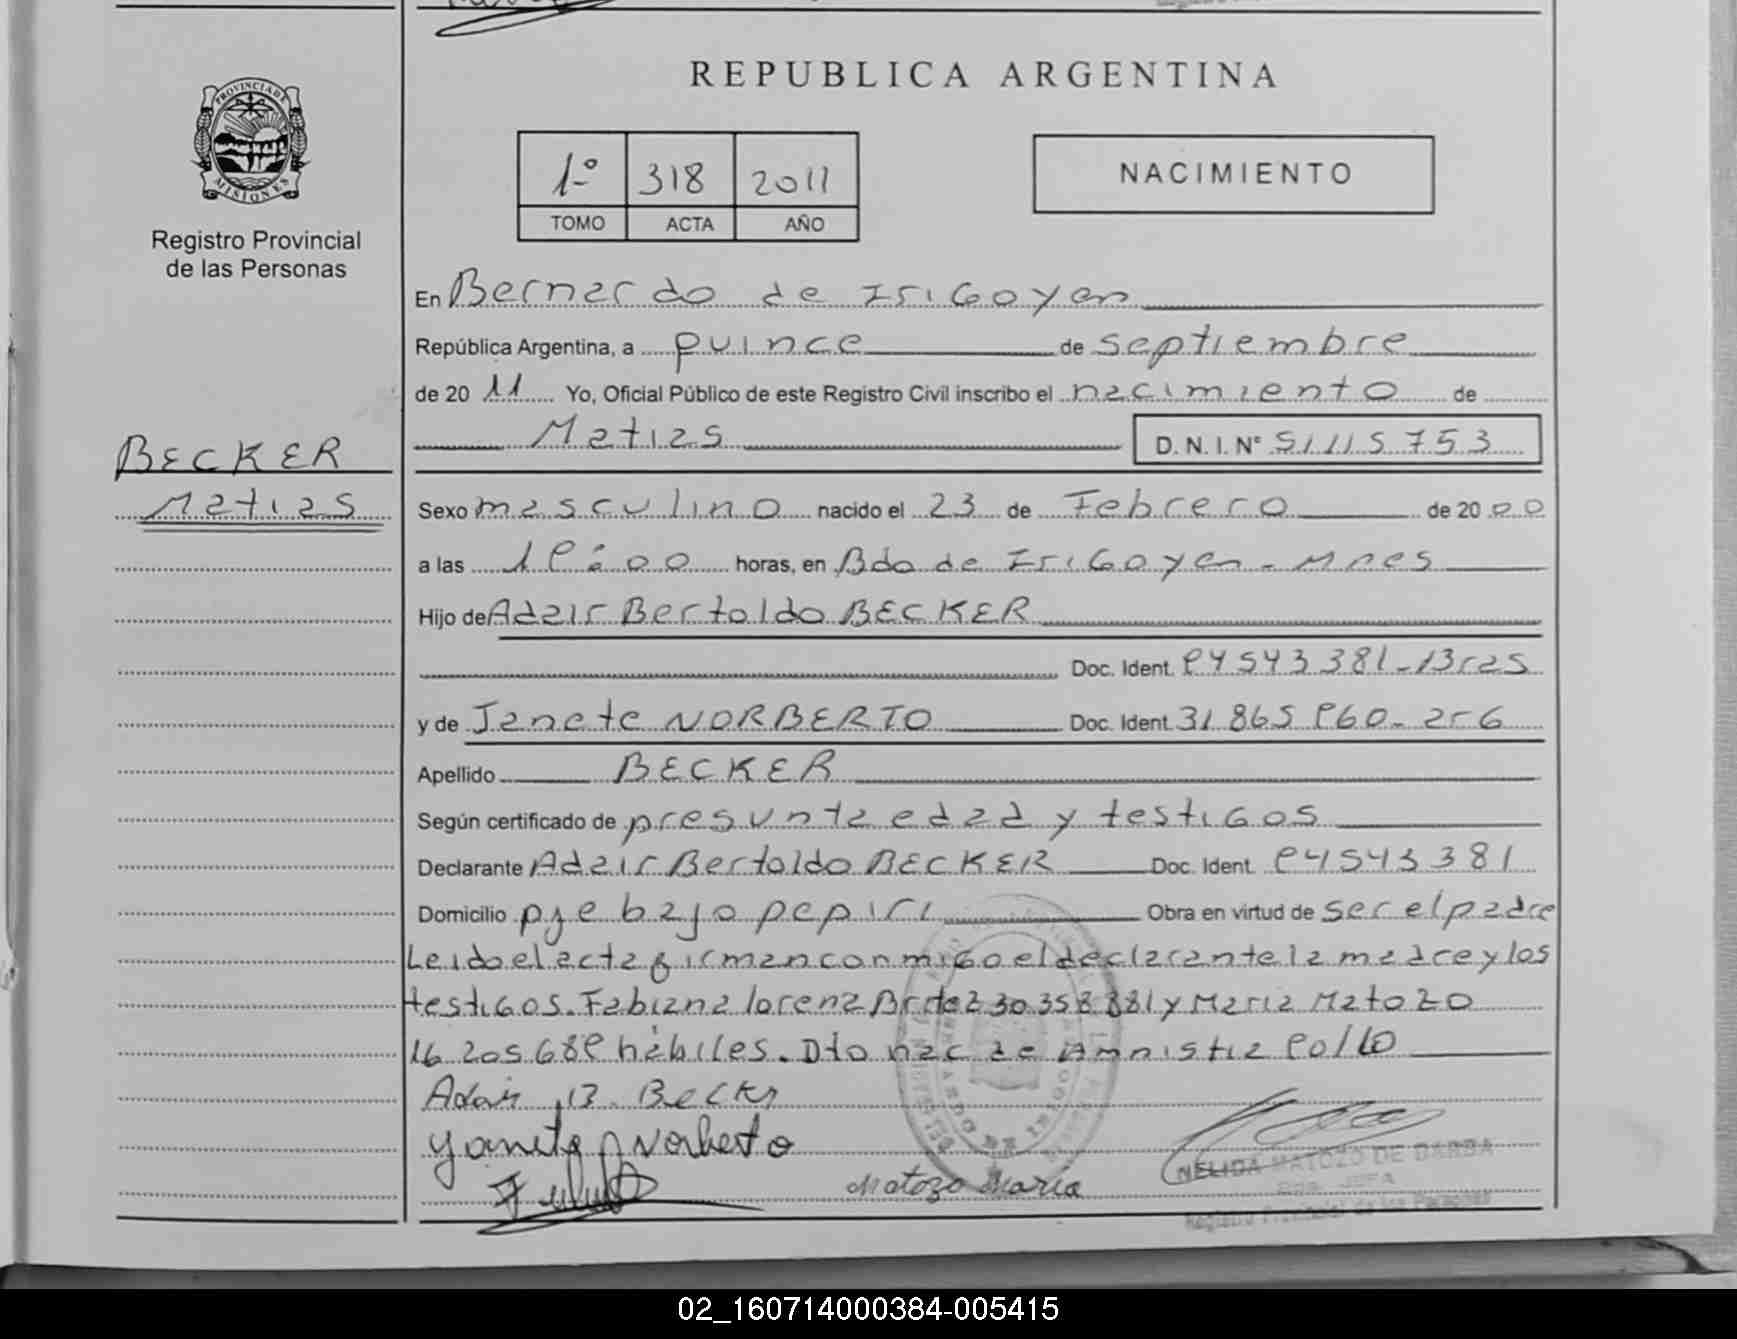 REPUBLICA ARGENTINA
PROVINCIA DE
MISIONES
Registro Provincial
de las Personas
1º 318 2011
TOMO ACTA AÑO
NACIMIENTO
En Bernardo de IriGoyen
República Argentina, a quince de septiembre
de 20 11 Yo, Oficial Público de este Registro Civil inscribo el nacimiento de
Matias D. N. I. Nº 51115753
BECKER
Matias
Sexo masculino nacido el 23 de Febrero de 20 00
a las 19:00 horas, en Bdo de IriGoyen - Mnes
Hijo de Adair Bertoldo BECKER
Doc. Ident. 94543381-Bras
y de Janete NORBERTO Doc. Ident. 31865960-arG
Apellido BECKER
Según certificado de presunta edad y testiGos
Declarante Adair Bertoldo BECKER Doc. Ident. 94543381
Domicilio pje bajo pepiri Obra en virtud de ser el padre
Leido el acta firman conmiGo el declarante la madre y los
testiGos. Fabiana lorena 30.358.881 y Maria Matozo
16.205.689 hábiles. Dto nac de Amnistia
Adair B. Becker
Norberto
Matozo Maria
NELIDA MATOZO DE BARBA
JEFA
Registro Provincial de las Personas
02_160714000384-005415